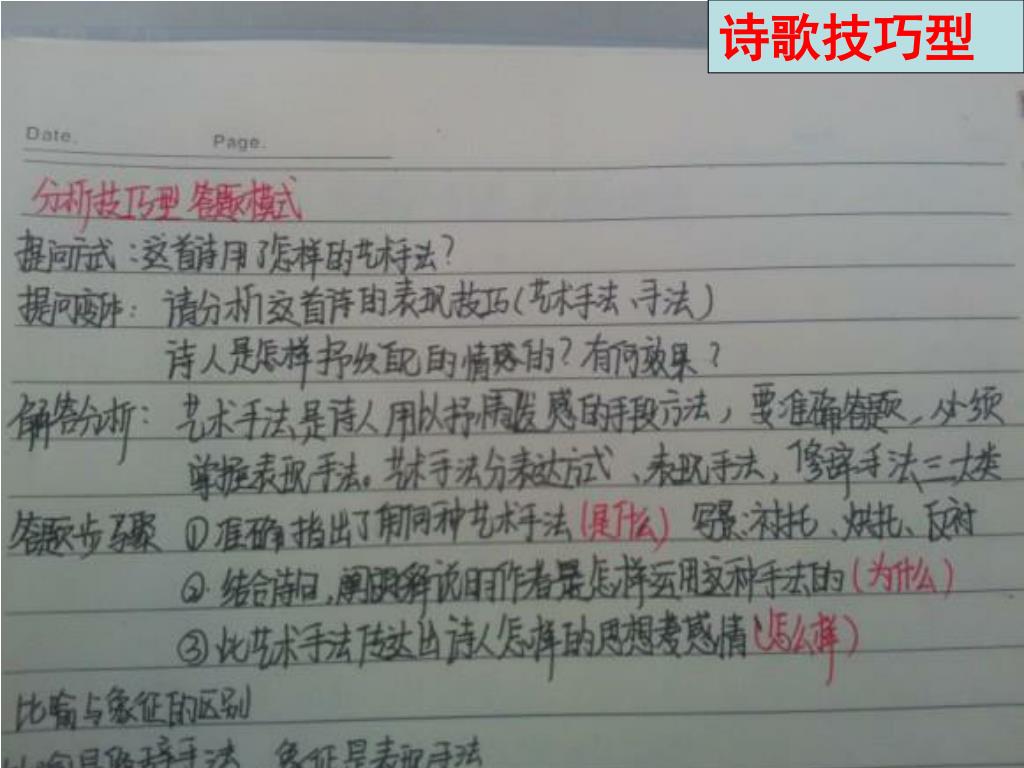 诗歌技巧型
Date. Page.
分析技巧型 答题模式
提问方式：这首诗用了怎样的艺术手法？
提问变体： 请分析这首诗的表现技巧（艺术手法、手法）
诗人是怎样抒发自己的情感的？有何效果？
解答分析： 艺术手法是诗人用以抒情发感的手段方法，要准确答题，必须
掌握表现手法。艺术手法分表达方式、表现手法，修辞手法三大类
答题步骤 ①准确指出了用何种艺术手法（是什么） 写景：衬托、烘托、反衬
②结合诗句，阐明解说明作者是怎样运用这种手法的（为什么）
③此艺术手法传达出诗人怎样的思想考感情（怎么样）
比喻与象征的区别
比喻是修辞手法 象征是表现手法